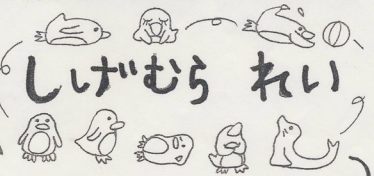 しげむら れい